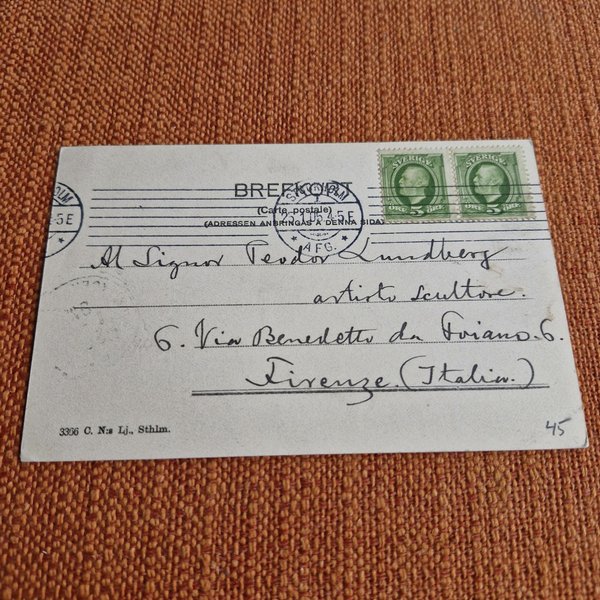 SVERIGE SVERIGE
ÖRE 5 ÖRE ÖRE 5 ÖRE
STOCKHOLM
AFG.
5 E
BREFKORT
(Carte postale)
(ADRESSEN ANBRINGAS Å DENNA SIDA)
Al Signor Teodor Lundberg
artisto scultore.
6. Via Benedetto da Foiano. 6.
Firenze. (Italia.)
3366 C. N:s Lj., Sthlm.
45